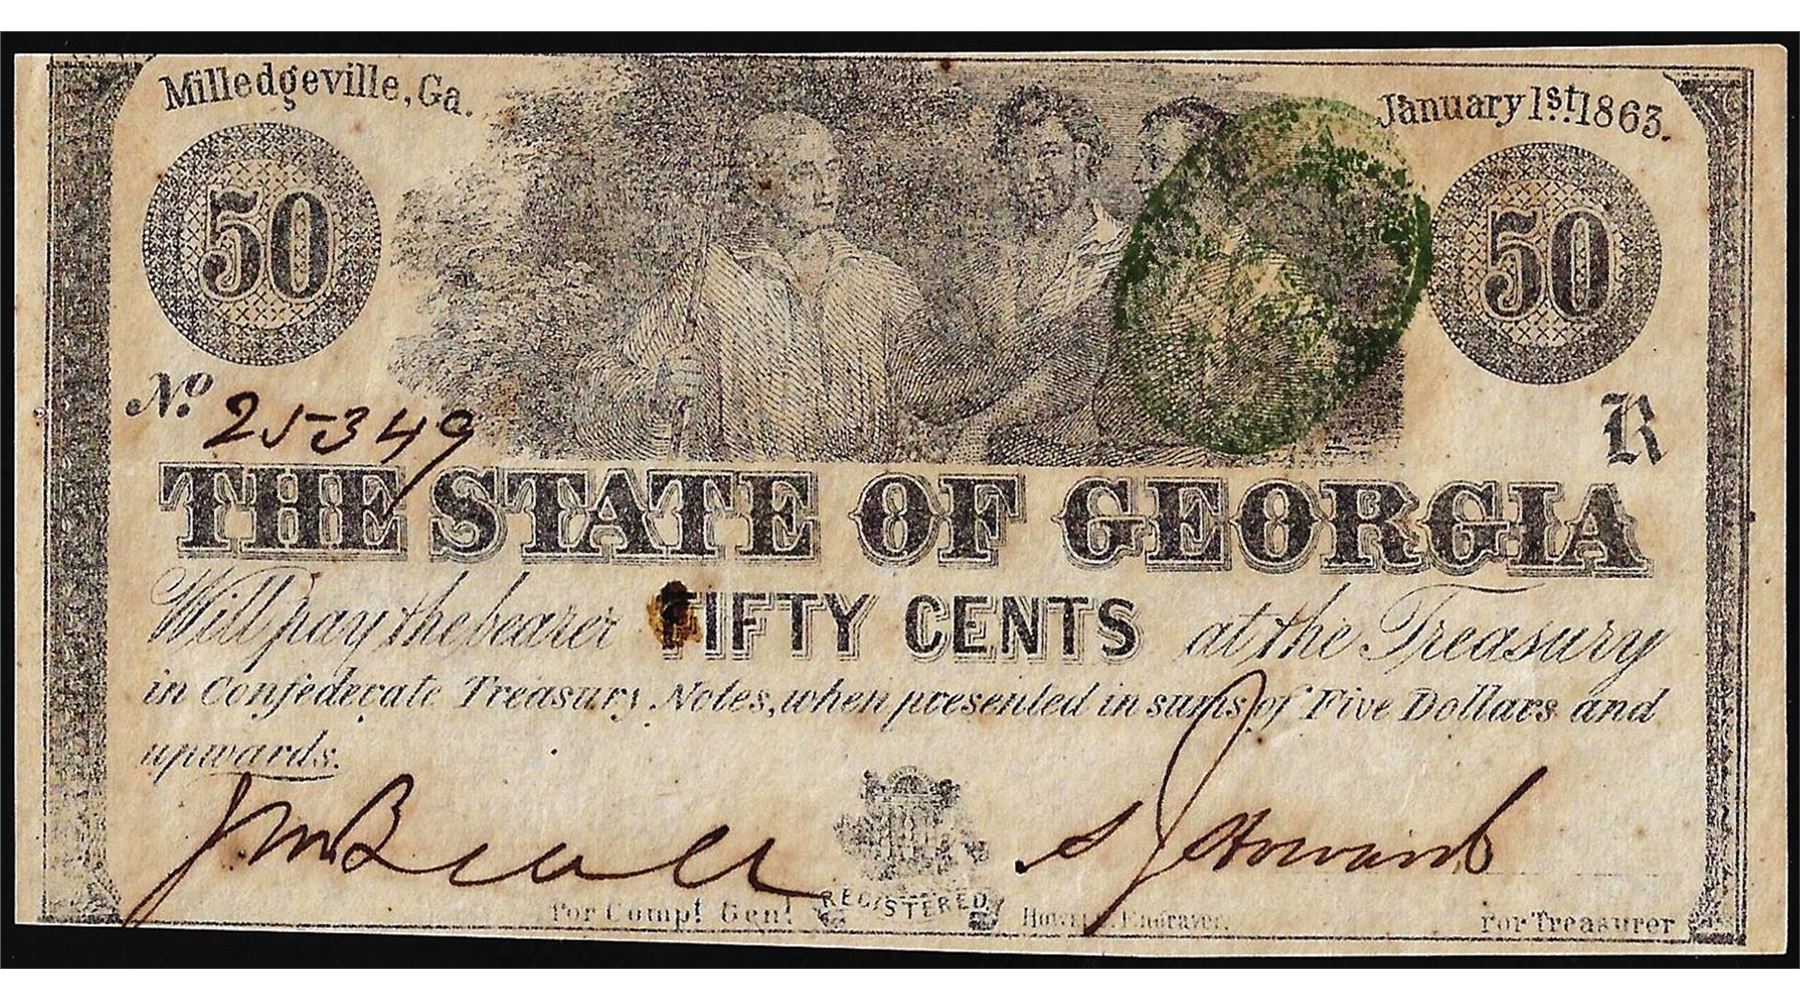 Milledgeville, Ga.
January 1st 1863.
50
50
No. 25349
R
THE STATE OF GEORGIA
Will pay the bearer FIFTY CENTS at the Treasury
in Confederate Treasury Notes, when presented in sums of Five Dollars and
upwards.
S J Howard
REGISTERED
For Compt Genl
Engraver.
For Treasurer